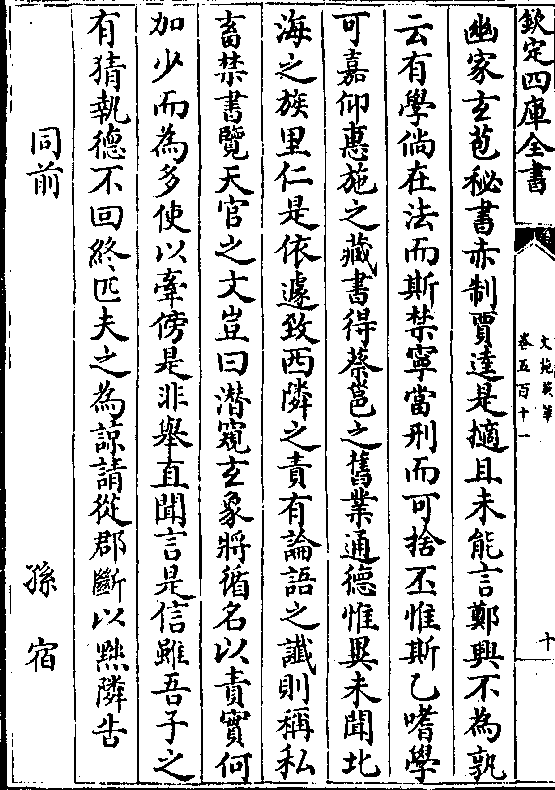 欽定四庫全書
文苑英華
卷五百十一
十
幽家玄苞秘書赤制賈逵是擿且未能言鄭興不為孰
云有學倘在法而斯禁寧當刑而可捨丕惟斯乙嗜學
可嘉仰惠施之藏書得蔡邕之舊業通德惟異未聞北
海之族里仁是依遽致西隣之責有論語之讖則稱私
畜禁書覽天官之文豈曰潛窺玄象將循名以責實何
加少而為多使以牽傍是非舉直聞言是信雖吾子之
有猜執德不回終匹夫之為諒請從郡斷以㸃隣告
同前
孫宿